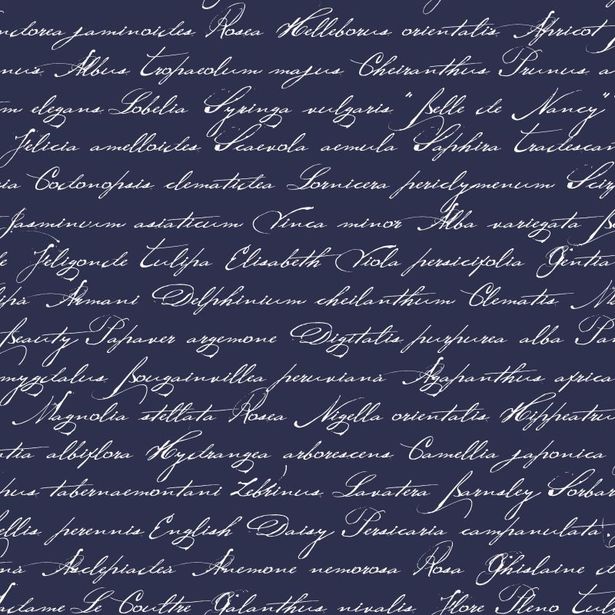 jasminoides Rosea Helleborus orientalis Apricot
Albus Tropaeolum majus Cheiranthus Prunus a
m elegans Lobelia Syringa vulgaris "Belle de Nancy"
Felicia amelloides Scaevola aemula Saphira Tradescan
ia Codonopsis clematidea Lornicera periclymenum Scir
Jasminum asiaticum Vinca minor Alba variegata
Feligonde Tulipa Elisabeth Viola persicifolia Gentia
lipa Armani Delphinium cheilanthum Clematis
Beauty Papaver argemone Digitalis purpurea alba
mygdalus Bougainvillea peruviana Agapanthus africa
Magnolia stellata Rosea Nigella orientalis Hippeatru
ntia albiflora Hydrangea arborescens Camellia japonica
pus tabernaemontani Zebrinus Lavatera Barnsley Sorbar
ellis perennis English Daisy Persicaria campanulata
Asclepiadea Anemone nemorosa Rosa Ghislaine de
adame Le Coultre Galanthus nivalis Flore Pleno Tul